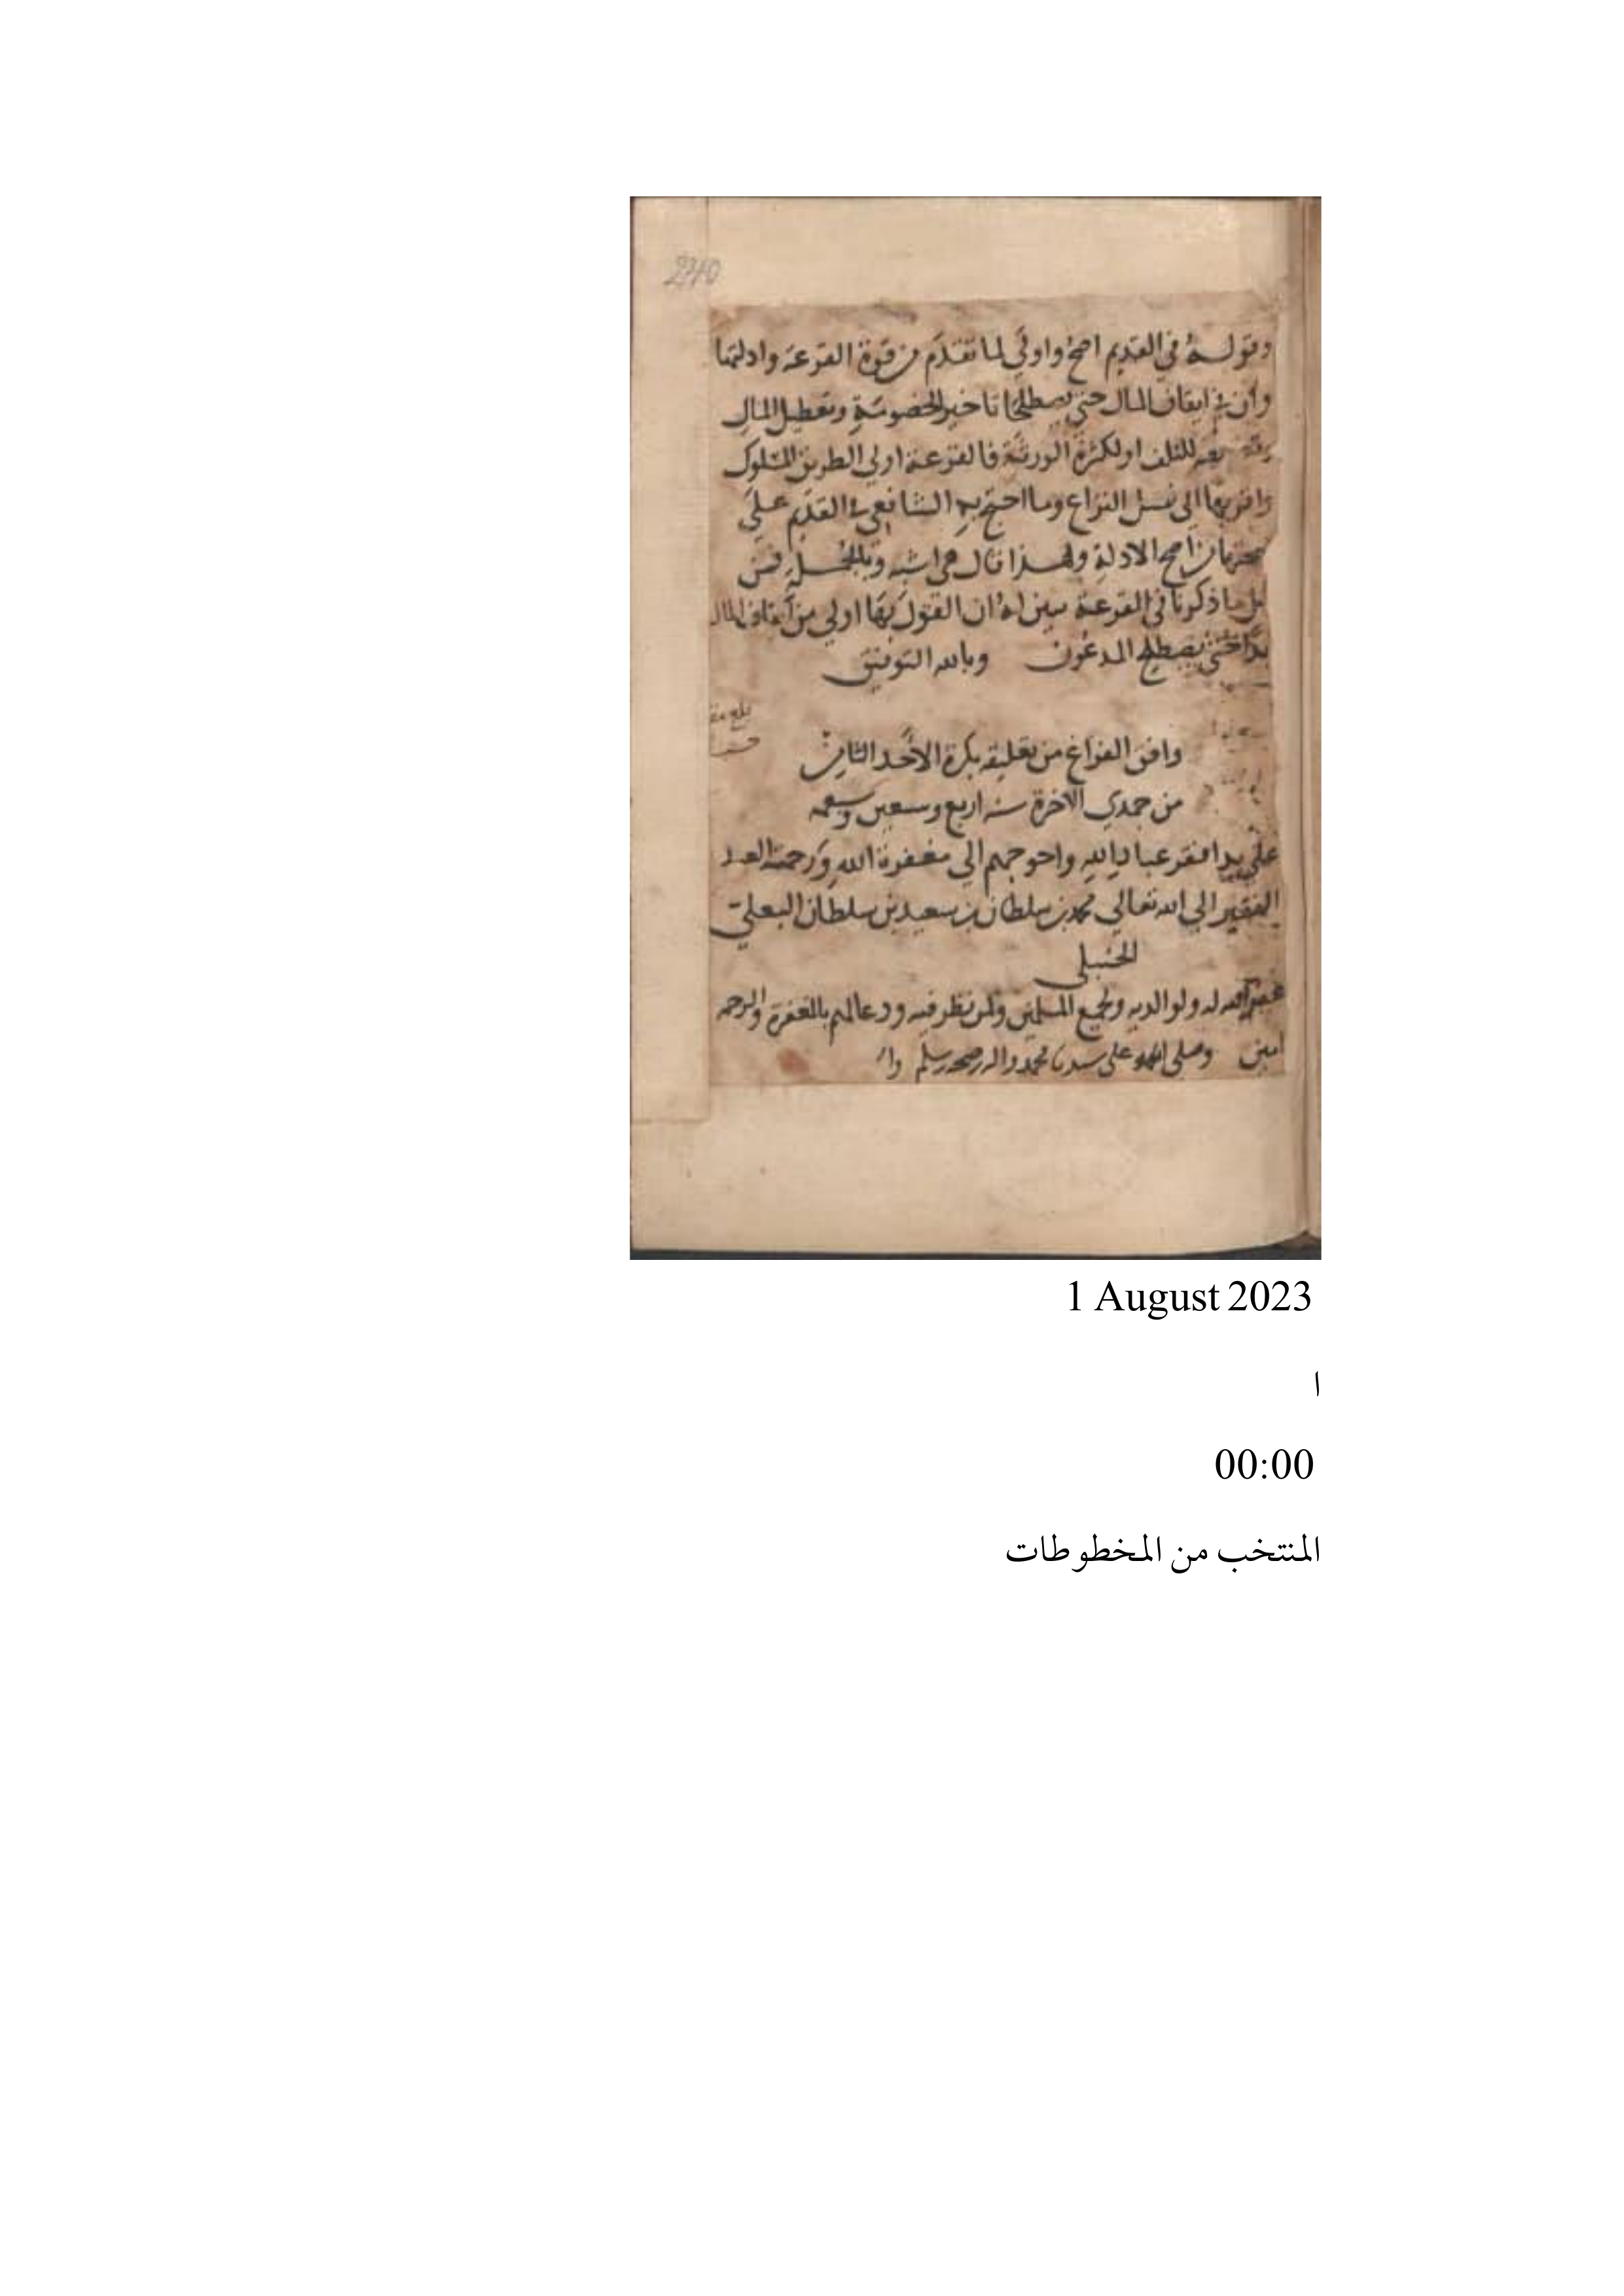 240
وقوله في القديم اصح واولى لما تقدم من قوة القرعة وادلتها
وان في ايقاف المال حتى يصطلحا تاخير الخصومة وتعطيل المال
للتلف او لكثرة الورثة فالقرعة اولى الطريق المسلوك
واقربها الى فصل النزاع وما احتج به الشافعي في القديم على
صحتها من اصح الادلة ولهذا قال هي اشبه وبالجملة فمن
تامل ما ذكرنا في القرعة تبين له ان القول بها اولى من ايقاف المال
ابدا حتى يصطلح المدعون وبالله التوفيق
بلغ
وافق الفراغ من تعليقه بكرة الاحد الثامن
من جمدي الاخرة سنه اربع
على يد افقر عباد الله واحوجهم الي مغفرة الله ورحمته العبد
الفقير الى الله تعالي محمد بن سلطان بن سعيد بن سلطان البعلي
الحنبلي
غفر الله له ولوالديه ولجميع المسلمين ولمن نظر فيه ودعا لهم بالمغفرة والرحمه
امين وصلى الله على سيدنا محمد واله وصحبه وسلم
1 August 2023
ا
00:00
المنتخب من المخطوطات